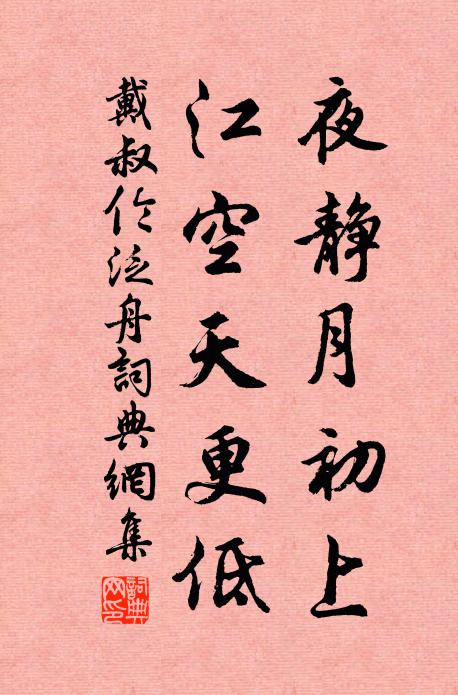 夜静月初上
江空天更低
戴叔伦泛舟詞典網集
詞典网印